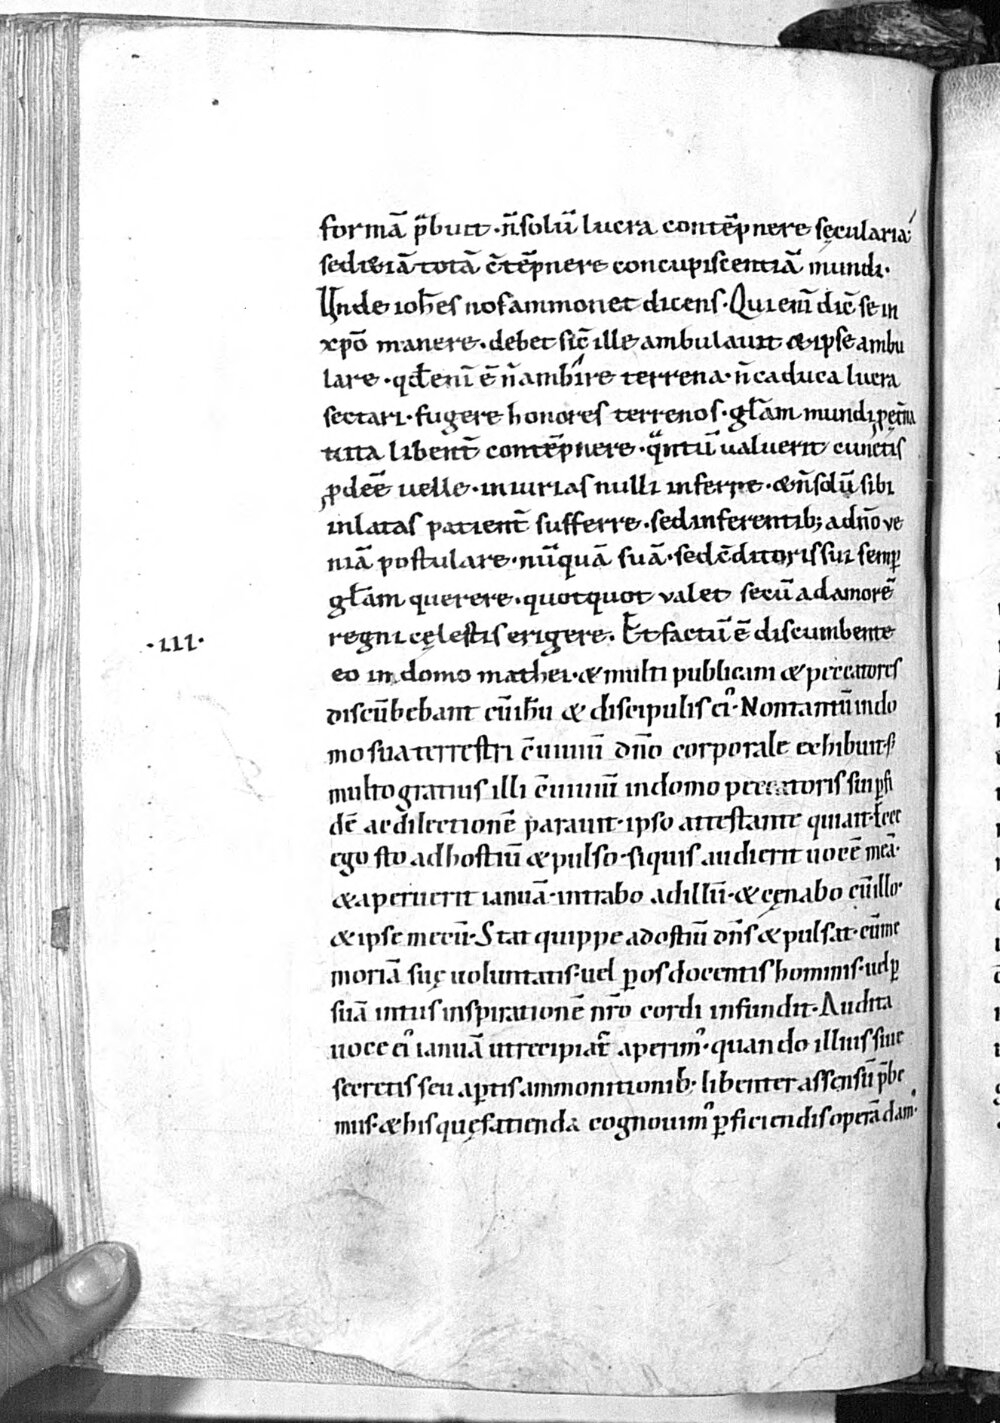 formā p̄buit · n̄ solū lucra contēpnere sęcularia
sed & uiā totā c̄tēpnere concupiscentiā mundi ·
Unde ioh̄es nos ammonet dicens · Qui eni͞ dic̄ se in
xp̄o manere · debet sic̄ ille ambulauit & ipse ambu
lare · qđ eni͞ ē n̄ ambire terrena · n̄ caduca lucra
sectari · fugere honores terrenos · gl̄am mundi ꝓ ęt̄na
uita libent̄ contēpnere · q̄ntū ualuerit cunctis
ꝓdeē̄ uelle · iniurias nulli inferre · & n̄ solū sibi
inlatas patient̄ sufferre · sed inferentib; a dn̄o ue
niā postulare · nūquā suā · sed c̄ditoris sui semꝑ
gl̄am querere · quotquot valet secū ad amorē
regni cęlestis erigere. Et factū ē discumbente
· III ·
eo in domo mathei · & multi publicani & peccatores
discūbebant cū ih̄u & discipulis ei᾽ · Non tantū in do
mo sua terrestri c̄uiuiū dn̄o corporale exhibuit · s;
multo gratius illi c̄uiuiū in domo peccatoris sui ꝑ fi
dē ac dilectionē parauit · ipso attestante qui ait · Ecce
ego sto ad hostiū & pulso · si quis audierit uocē meā ·
& aperuerit ianuā · intrabo ad illū · & cęnabo cū illo ·
& ipse mecū · Stat quippe ad ostiū dn̄s & pulsat · cū me
moriā suę uoluntatis · uel ꝑ os docentis hominis · uel ꝑ
suā intus inspirationē nr̄o cordi infundit · Audita
uoce ei᾽ ianuā ut recipiat̄ aperim᾽ · quando illius siue
secretis seu aꝑtis ammonitionib; libenter assensū p̄be
mus · & his quę facienda cognouim᾽ ꝑficiendis operā dam᾽ ·